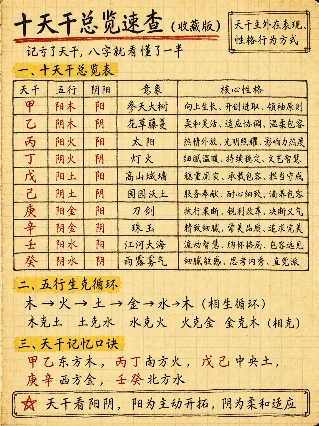 十天干总览速查(收藏版)
天干主外在表现、
性格行为方式
记亏了天干,八字就看懂了一半
一、十天干总览表
天干 五行 阴阳 意象 核心性格
甲 阳木 阳 参天大树 向上生长、开创进取、领袖原则
乙 阴木 阴 花草藤蔓 柔和灵活、适应协调、温柔包容
丙 阳火 阳 太阳 热情外放、光明照耀、影响力热度
丁 阴火 阴 灯火 细腻温暖、持续稳定、文艺智慧
戊 阳土 阳 高山城墙 稳重厚实、承载包容、担当守成
己 阴土 阴 田园沃土 服务奉献、耐心细致、滋养包容
庚 阳金 阳 刀剑 执行果断、锐利改革、决断义气
辛 阴金 阴 珠玉 精致细腻、审美品质、追求完美
壬 阳水 阳 江河大海 流动智慧、纳怀格局、包容远见
癸 阴水 阴 雨露雾气 细腻敏感、思考内秀、直觉派
二、五行生克循环
木→火→土→金→水→木(相生循环)
木克土 土克水 水克火 火克金 金克木(相克)
三、天干记忆口诀
甲乙东方木,丙丁南方火,戊己中央土,
庚辛西方金,壬癸北方水
天干看阴阳,阳为主动开拓,阴为柔和适应